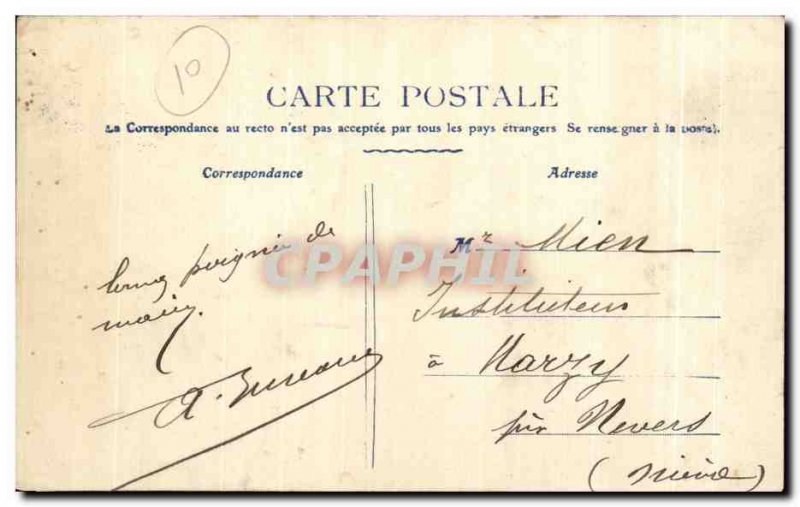 10
CARTE POSTALE
La Correspondance au recto n'est pas acceptée par tous les pays étrangers Se renseigner à la poste).
Correspondance
Adresse
bonne poignée de
main.
Mr Mien
Instituteur
à Marzy
par Nevers
(Nièvre)
CPAPHIL